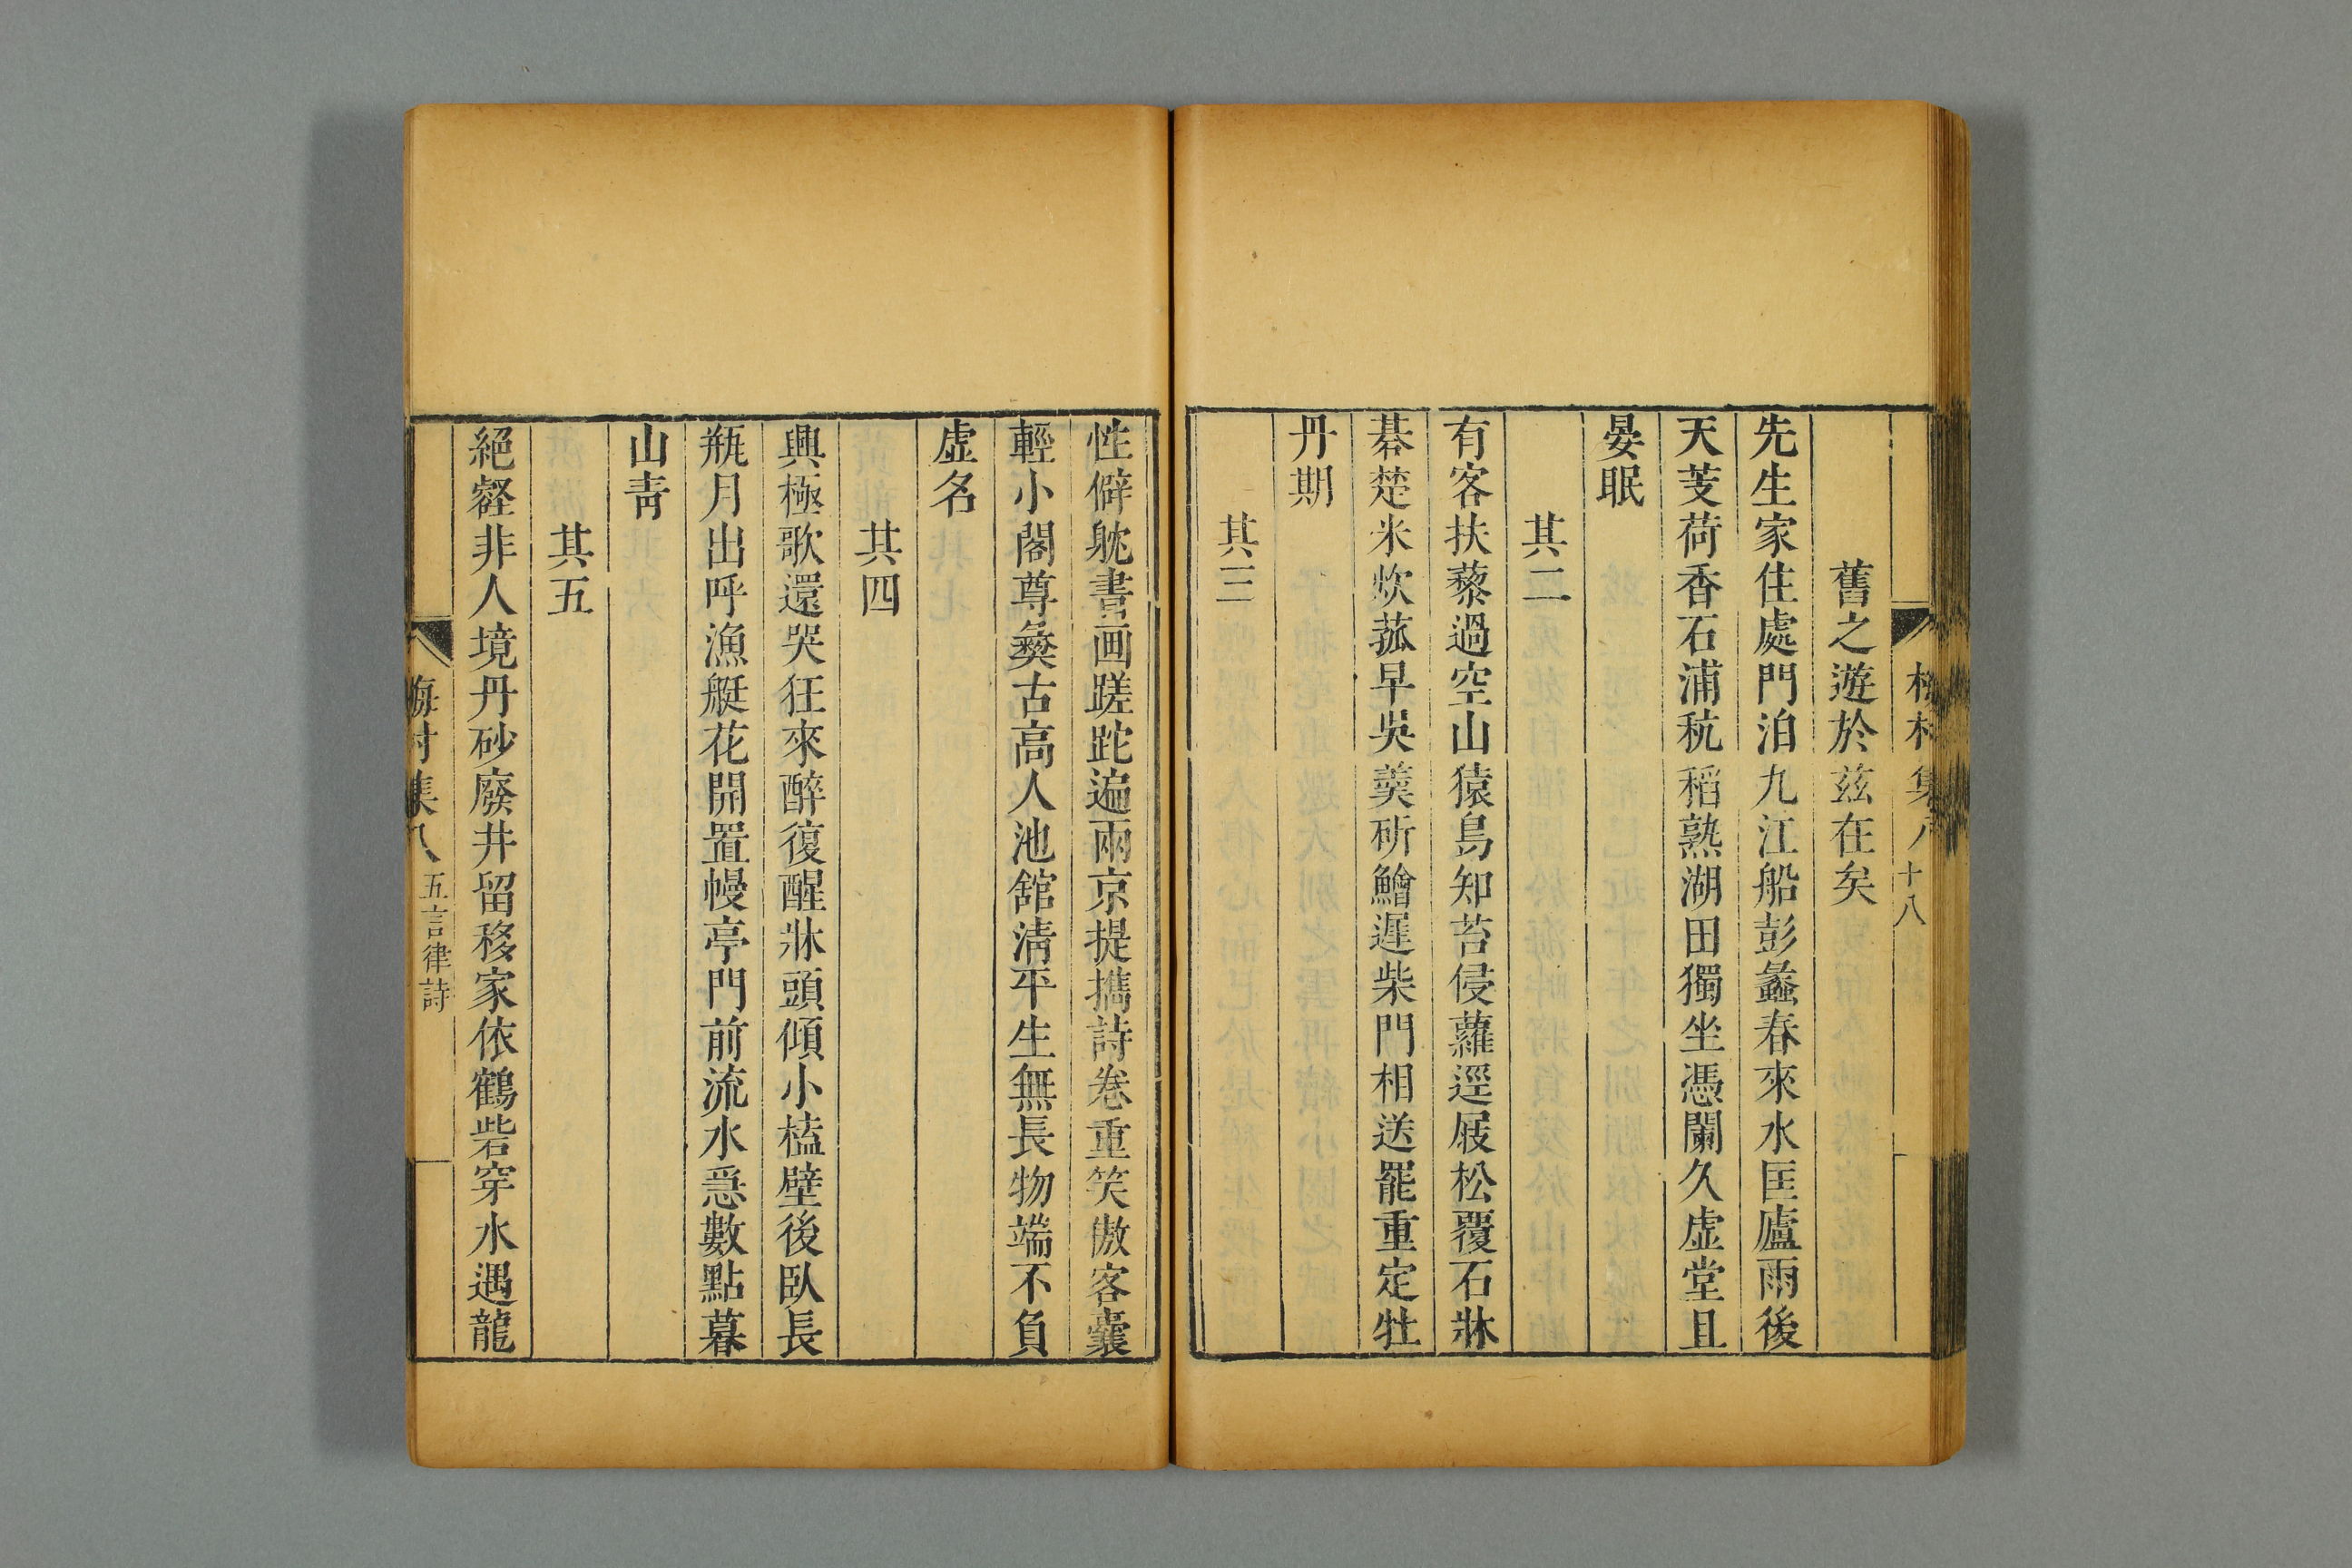 梅村集八 十八
舊之遊於茲在矣
先生家住處門泊九江船彭蠡春來水匡廬雨後
天芰荷香石浦秔稻熟湖田獨坐憑闌久虛堂且
晏眠
其二
有客扶藜過空山猿鳥知苔侵蘿逕屐松覆石牀
棊楚米炊菰早吳羹斫鱠遲柴門相送罷重定牡
丹期
其三
性僻躭書画蹉跎遍兩京提攜詩卷重笑傲客囊
輕小閣尊彝古高人池舘清平生無長物端不負
虛名
其四
興極歌還哭狂來醉復醒牀頭傾小榼壁後臥長
瓶月出呼漁艇花開置幔亭門前流水急數點暮
山青
其五
絕壑非人境丹砂廢井留移家依鶴砦穿水遇龍
梅村集八 五言律詩